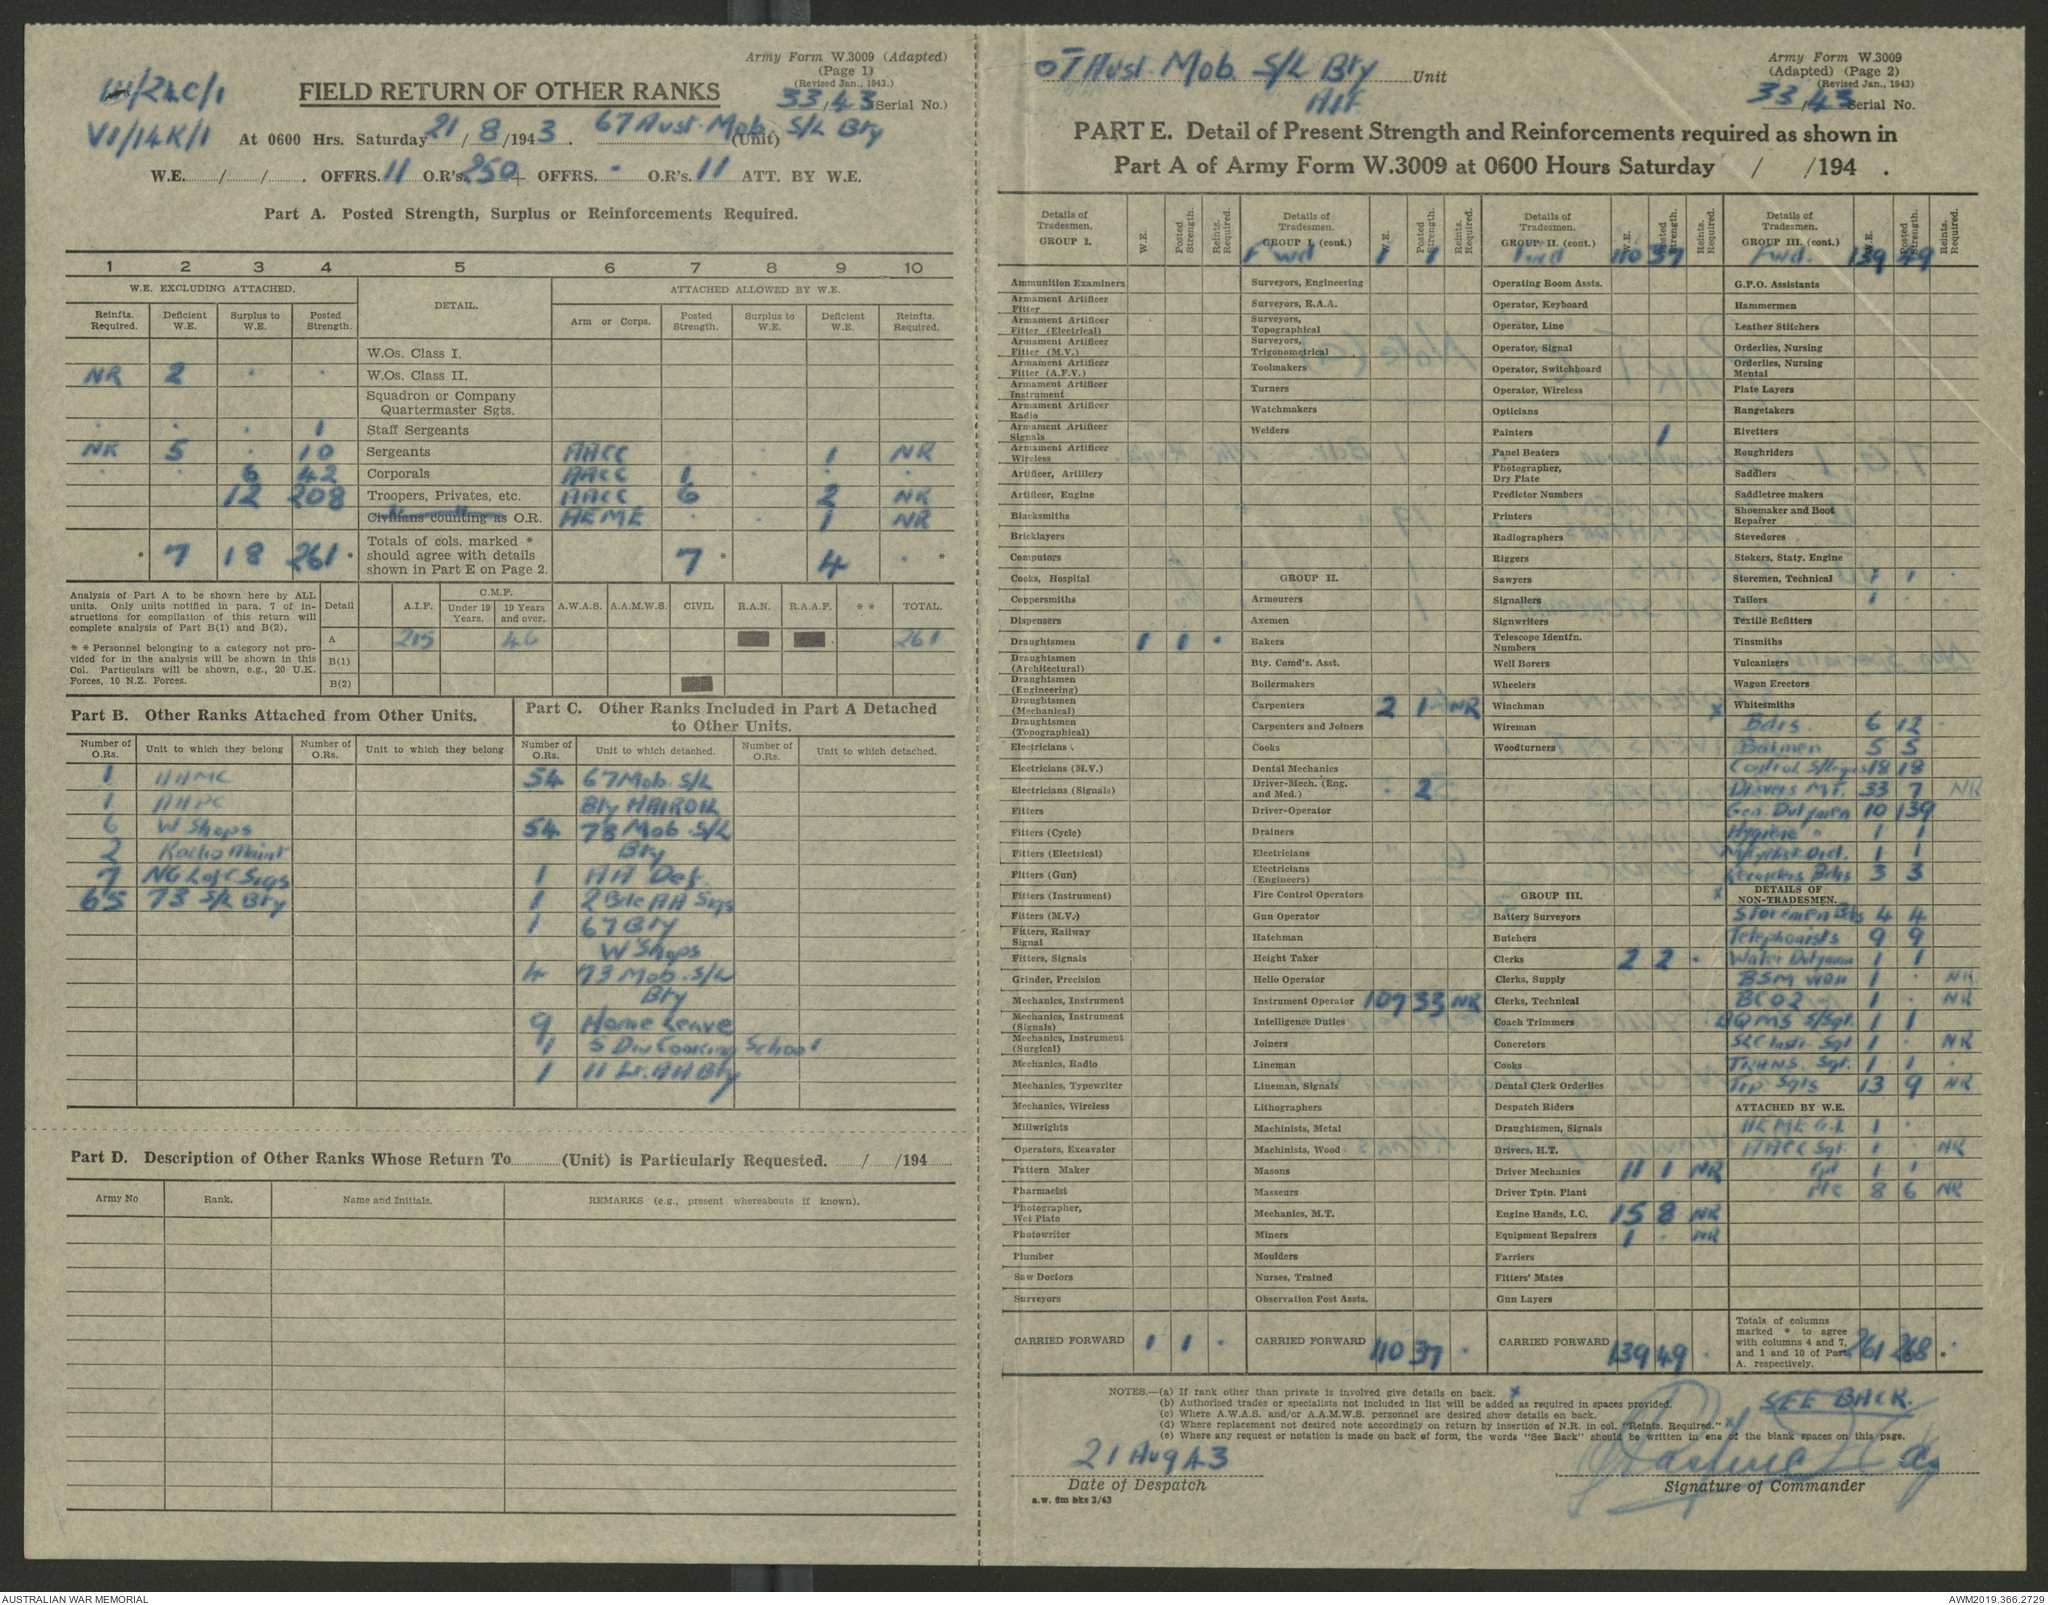 Army Form W.3009 (Adapted)
(Page 1)
(Revised Jan., 1943.)
33/43 (Serial No.)
/24C/1
VI/14K/1
FIELD RETURN OF OTHER RANKS
At 0600 Hrs. Saturday 21/8/1943. 67 Aust. Mob. S/L Bty (Unit)
W.E. / / . OFFRS. 11 O.R's. 250 + OFFRS. . O.R's. 11 ATT. BY W.E.
Part A. Posted Strength, Surplus or Reinforcements Required.
1 2 3 4 5 6 7 8 9 10
W.E. EXCLUDING ATTACHED. DETAIL. ATTACHED ALLOWED BY W.E.
Reinfts. Required. Deficient W.E. Surplus to W.E. Posted Strength. Arm or Corps. Posted Strength. Surplus to W.E. Deficient W.E. Reinfts. Required.
W.Os. Class I.
NR 2 . . W.Os. Class II.
Squadron or Company Quartermaster Sgts.
. . . 1 Staff Sergeants
NR 5 . 10 Sergeants AACC . . 1 NR
. . 6 42 Corporals AACC 1 . . .
12 208 Troopers, Privates, etc. AACC 6 2 NR
Civilians counting as O.R. AEME . . 1 NR
* 7 18 261 * Totals of cols. marked * should agree with details shown in Part E on Page 2. 7 * 4 . *
Analysis of Part A to be shown here by ALL units. Only units notified in para. 7 of instructions for compilation of this return will complete analysis of Part B(1) and B(2).
* * Personnel belonging to a category not provided for in the analysis will be shown in this Col. Particulars will be shown, e.g., 20 U.K. Forces, 10 N.Z. Forces.
Detail A.I.F. C.M.F. Under 19 Years. 19 Years and over. A.W.A.S. A.A.M.W.S. CIVIL R.A.N. R.A.A.F. * * TOTAL.
A 215 46 261
B(1)
B(2)
Part B. Other Ranks Attached from Other Units.
Number of O.Rs. Unit to which they belong Number of O.Rs. Unit to which they belong
1 AAMC
1 AAPC
6 W Shops
2 Radio Maint
7 NG L of C Sigs
65 73 S/L Bty
Part C. Other Ranks Included in Part A Detached to Other Units.
Number of O.Rs. Unit to which detached. Number of O.Rs. Unit to which detached.
54 67 Mob. S/L
Bty
54 73 Mob. S/L
Bty
1 AA Def.
1 2 Bde AA Sigs
1 67 Bty
W'Shops
4 73 Mob. S/L
Bty
9 Home Leave
1 5 Div Cooking School
1 11 Lt. AA Bty
Part D. Description of Other Ranks Whose Return To (Unit) is Particularly Requested. / /194
Army No Rank. Name and Initials. REMARKS (e.g., present whereabouts if known).
Aust. Mob. S/L Bty Unit
AIF
Army Form W.3009
(Adapted) (Page 2)
(Revised Jan., 1943)
33/43 Serial No.
PART E. Detail of Present Strength and Reinforcements required as shown in
Part A of Army Form W.3009 at 0600 Hours Saturday / /194 .
Details of Tradesmen. GROUP I. W.E. Posted Strength. Reints. Required.
Ammunition Examiners
Armament Artificer Fitter
Armament Artificer Fitter (Electrical)
Armament Artificer Fitter (M.V.)
Armament Artificer Fitter (A.F.V.)
Armament Artificer Instrument
Armament Artificer Radio
Armament Artificer Signals
Armament Artificer Wireless
Artificer, Artillery
Artificer, Engine
Blacksmiths
Bricklayers
Computors
Cooks, Hospital
Coppersmiths
Dispensers
Draughtsmen 1 1 .
Draughtsmen (Architectural)
Draughtsmen (Engineering)
Draughtsmen (Mechanical)
Draughtsmen (Topographical)
Electricians
Electricians (M.V.)
Electricians (Signals)
Fitters
Fitters (Cycle)
Fitters (Electrical)
Fitters (Gun)
Fitters (Instrument)
Fitters (M.V.)
Fitters, Railway Signal
Fitters, Signals
Grinder, Precision
Mechanics, Instrument
Mechanics, Instrument (Signals)
Mechanics, Instrument (Surgical)
Mechanics, Radio
Mechanics, Typewriter
Mechanics, Wireless
Millwrights
Operators, Excavator
Pattern Maker
Pharmacist
Photographer, Wet Plate
Photowriter
Plumber
Saw Doctors
Surveyors
CARRIED FORWARD 1 1 .
Details of Tradesmen. GROUP I. (cont.) W.E. Posted Strength. Reints. Required.
Fwd 1 1
Surveyors, Engineering
Surveyors, R.A.A.
Surveyors, Topographical
Surveyors, Trigonometrical
Toolmakers
Turners
Watchmakers
Welders
GROUP II.
Armourers
Axemen
Bakers
Bty. Comd's. Asst.
Boilermakers
Carpenters 2 1 NR
Carpenters and Joiners
Cooks
Dental Mechanics
Driver-Mech. (Eng. and Med.) . 2
Driver-Operator
Drainers
Electricians
Electricians (Engineers)
Fire Control Operators
Gun Operator
Hatchman
Height Taker
Helio Operator
Instrument Operator 107 33 NR
Intelligence Duties
Joiners
Lineman
Lineman, Signals
Lithographers
Machinists, Metal
Machinists, Wood
Masons
Masseurs
Mechanics, M.T.
Miners
Moulders
Nurses, Trained
Observation Post Assts.
CARRIED FORWARD 110 37 .
Details of Tradesmen. GROUP II. (cont.) W.E. Posted Strength. Reints. Required.
Fwd 110 37
Operating Room Assts.
Operator, Keyboard
Operator, Line
Operator, Signal
Operator, Switchboard
Operator, Wireless
Opticians
Painters 1
Panel Beaters
Photographer, Dry Plate
Predictor Numbers
Printers
Radiographers
Riggers
Sawyers
Signallers
Signwriters
Telescope Identfn. Numbers
Well Borers
Wheelers
Winchman
Wireman
Woodturners
GROUP III.
Battery Surveyors
Butchers
Clerks 2 2 .
Clerks, Supply
Clerks, Technical
Coach Trimmers
Concretors
Cooks
Dental Clerk Orderlies
Despatch Riders
Draughtsmen, Signals
Drivers, H.T.
Driver Mechanics 11 1 NR
Driver Tptn. Plant
Engine Hands, I.C. 15 8 NR
Equipment Repairers 1 . NR
Farriers
Fitters' Mates
Gun Layers
CARRIED FORWARD 139 49 .
Details of Tradesmen. GROUP III. (cont.) W.E. Posted Strength. Reints. Required.
Fwd. 139 49
G.P.O. Assistants
Hammermen
Leather Stitchers
Orderlies, Nursing
Orderlies, Nursing Mental
Plate Layers
Rangetakers
Rivetters
Roughriders
Saddlers
Saddletree makers
Shoemaker and Boot Repairer
Stevedores
Stokers, Staty. Engine
Storemen, Technical 1 1 .
Tailors 1 . .
Textile Refitters
Tinsmiths
Vulcanizers
Wagon Erectors
x Whitesmiths
Bdrs. 6 12 .
Batmen 5 5
Control 18 18
Drivers M.T. 33 7 NR
Gen. Dutymen 10 139
Hygiene " 1 1
1 1
Recorders Bdrs 3 3
x DETAILS OF NON-TRADESMEN.
Storemen Bdrs 4 4
Telephonists 9 9
Water Dutymen 1 1
BSM WOII 1 . NR
1 . NR
BQMS S/Sgt. 1 1
Sgt 1 . NR
TRANS. Sgt. 1 1 .
Trp. Sgts 13 9 NR
ATTACHED BY W.E.
AEME 1 .
AACC Sgt. 1 . NR
Cpl 1 1
8 6 NR
Totals of columns marked * to agree with columns 4 and 7, and 1 and 10 of Part A. respectively. 261 268 . *
NOTES.—(a) If rank other than private is involved give details on back. x
(b) Authorised trades or specialists not included in list will be added as required in spaces provided.
(c) Where A.W.A.S. and/or A.A.M.W.S. personnel are desired show details on back.
(d) Where replacement not desired note accordingly on return by insertion of N.R. in col. "Reints. Required." x
(e) Where any request or notation is made on back of form, the words "See Back" should be written in one of the blank spaces on this page.
SEE BACK.
21 Aug 43
Date of Despatch
Signature of Commander
a.w. 6m bks 3/43
AUSTRALIAN WAR MEMORIAL
AWM2019.366.2729